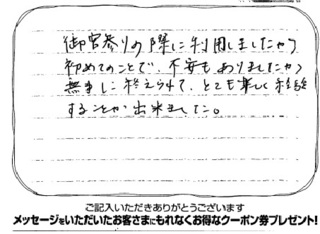 御宮参りの際に利用しましたが
初めてのことで、不安もありましたが
無事に終えられて、とても楽しく経験
することが出来ました。
ご記入いただきありがとうございます
メッセージをいただいたお客さまにもれなくお得なクーポン券プレゼント!